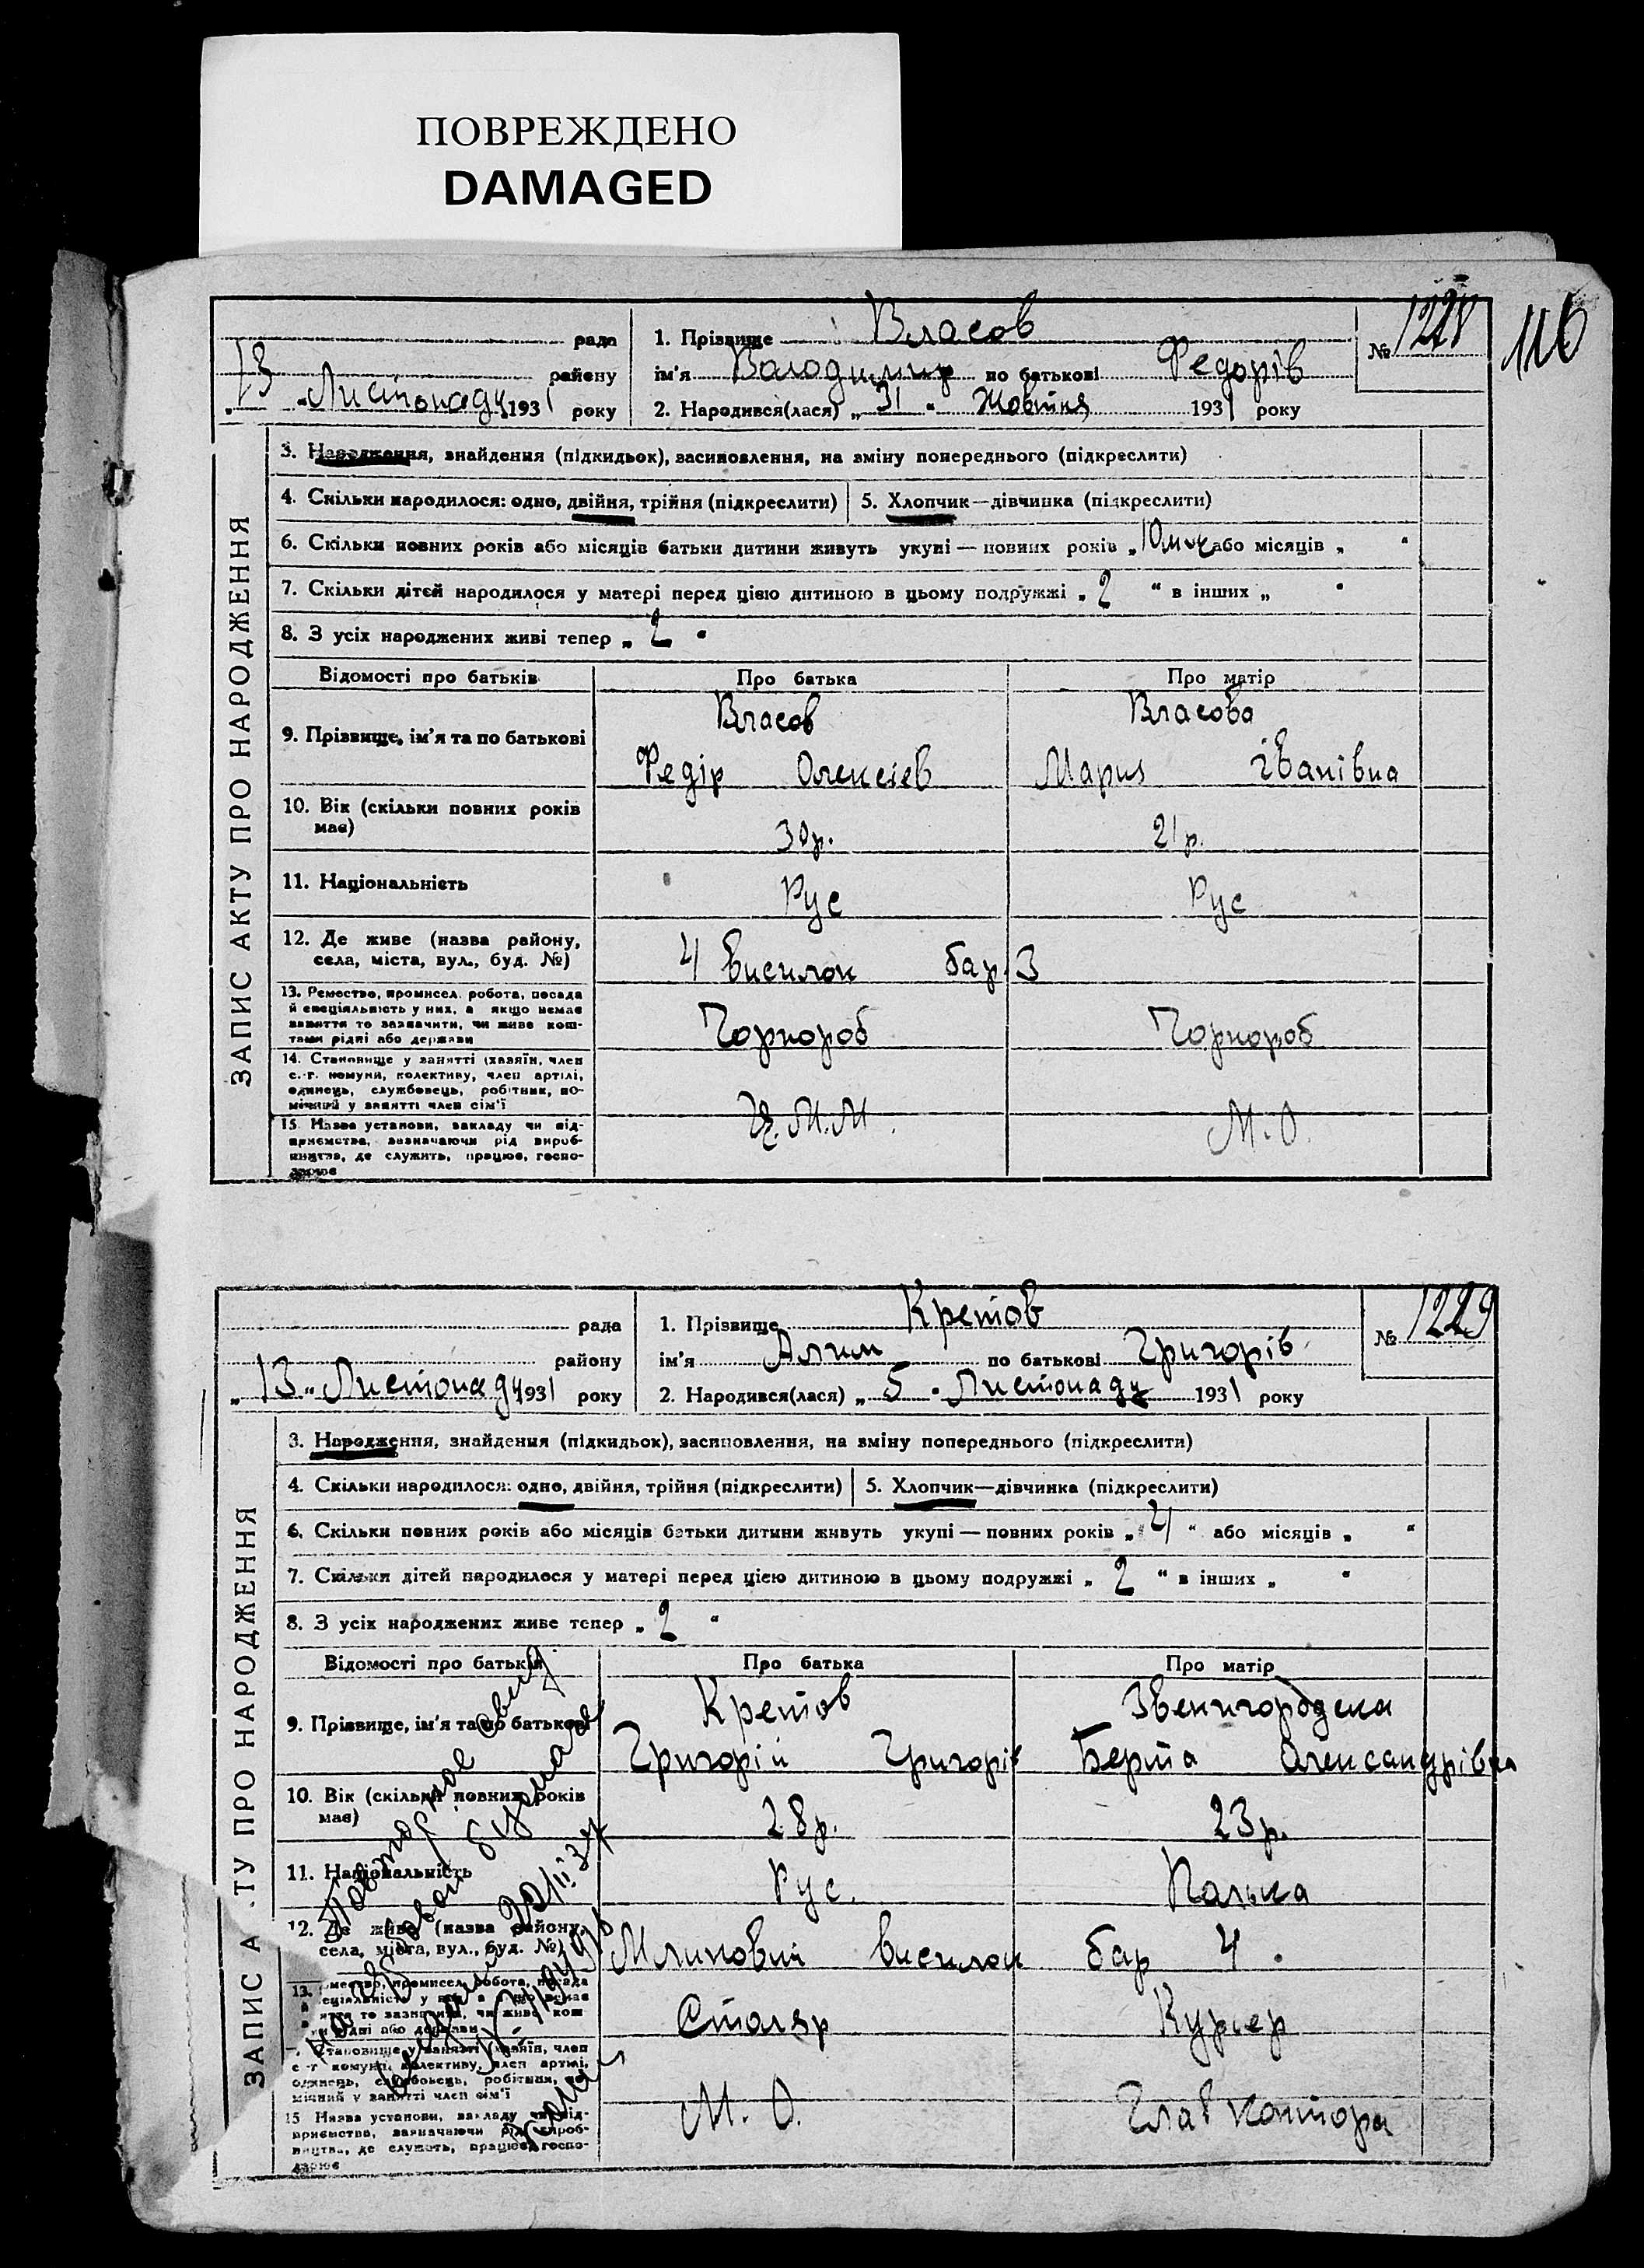 ПОВРЕЖДЕНО
DAMAGED
116
рада
району
"13 "Листопаду 1931 року
1. Прізвище Власов
ім'я Володимир по батькові Федорів
2. Народився(лася) „ 31 " Жовтня 1931 року
№ 1228
ЗАПИС АКТУ ПРО НАРОДЖЕННЯ
3. Народження, знайдення (підкидьок), засиновлення, на зміну попереднього (підкреслити)
4. Скільки народилося: одно, двійня, трійня (підкреслити) 5. Хлопчик—дівчинка (підкреслити)
6. Скільки повних років або місяців батьки дитини живуть укупі — повних років „ 10 або місяців „ "
7. Скільки дітей народилося у матері перед цією дитиною в цьому подружжі „ 2 " в інших „ "
8. З усіх народжених живі тепер „ 2 "
Відомості про батьків Про батька Про матір
9. Прізвище, ім'я та по батькові
Власов Власова
Федір Олексієв Мария Іванівна
10. Вік (скільки повних років має)
30р. 21р.
11. Національність Рус Рус
12. Де живе (назва району,
села, міста, вул., буд. №)
4 висилок бар. 3
13. Ремество, промисел, робота, посада
й спеціяльність у них, а якщо немає
заняття то зазначити, чи живе кош-
тами рідні або держави
Чорнороб Чорнороб
14. Становище у занятті (хазяїн, член
с.-г. комуни, колективу, член артілі,
одинець, службовець, робітник, по-
мічний у занятті член сім'ї
15. Назва установи, закладу чи під-
приємства, зазначаючи рід вироб-
ництва, де служить, працює, госпо-
дарює
М.М. М.О.
рада
району
„ 13 " Листопаду 1931 року
1. Прізвище Кретов
ім'я Алим по батькові Григорів
2. Народився(лася) „ 5 " Листопаду 1931 року
№ 1229
ЗАПИС А ТУ ПРО НАРОДЖЕННЯ
3. Народження, знайдення (підкидьок), засиновлення, на зміну попереднього (підкреслити)
4. Скільки народилося: одно, двійня, трійня (підкреслити) 5. Хлопчик—дівчинка (підкреслити)
6. Скільки повних років або місяців батьки дитини живуть укупі — повних років „ 4 " або місяців „ "
7. Скільки дітей народилося у матері перед цією дитиною в цьому подружжі „ 2 " в інших „ "
8. З усіх народжених живе тепер „ 2 "
Відомості про батьків Про батька Про матір
9. Прізвище, ім'я та по батькові
Кретов Звенигородска
Григорій Григорів Берта Олександрівна
10. Вік (скільки повних років має)
28р. 23р.
11. Національність Рус. Полька
12. Де живе (назва району,
села, міста, вул., буд. №)
Млиновий висилок бар 4.
13. мество, промисел, робота, посада
еціяльність у них, а якщо немає
яття то зазначити, чи живе кош-
и рідні або держави
Столяр Курьер
Становище у занятті (хазяїн, член
с.-г. комуни, колективу, член артілі,
одинець, службовець, робітник, по-
мічний у занятті член сім'ї
15 Назва установи, закладу чи під-
приємства, зазначаючи рід вироб-
ництва, де служить, працює, госпо-
дарює
М.О. Глав контора
Повторное свид